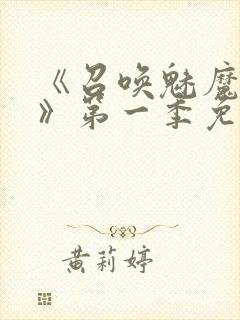 《召唤魅魔
》第一季免
黄莉婷